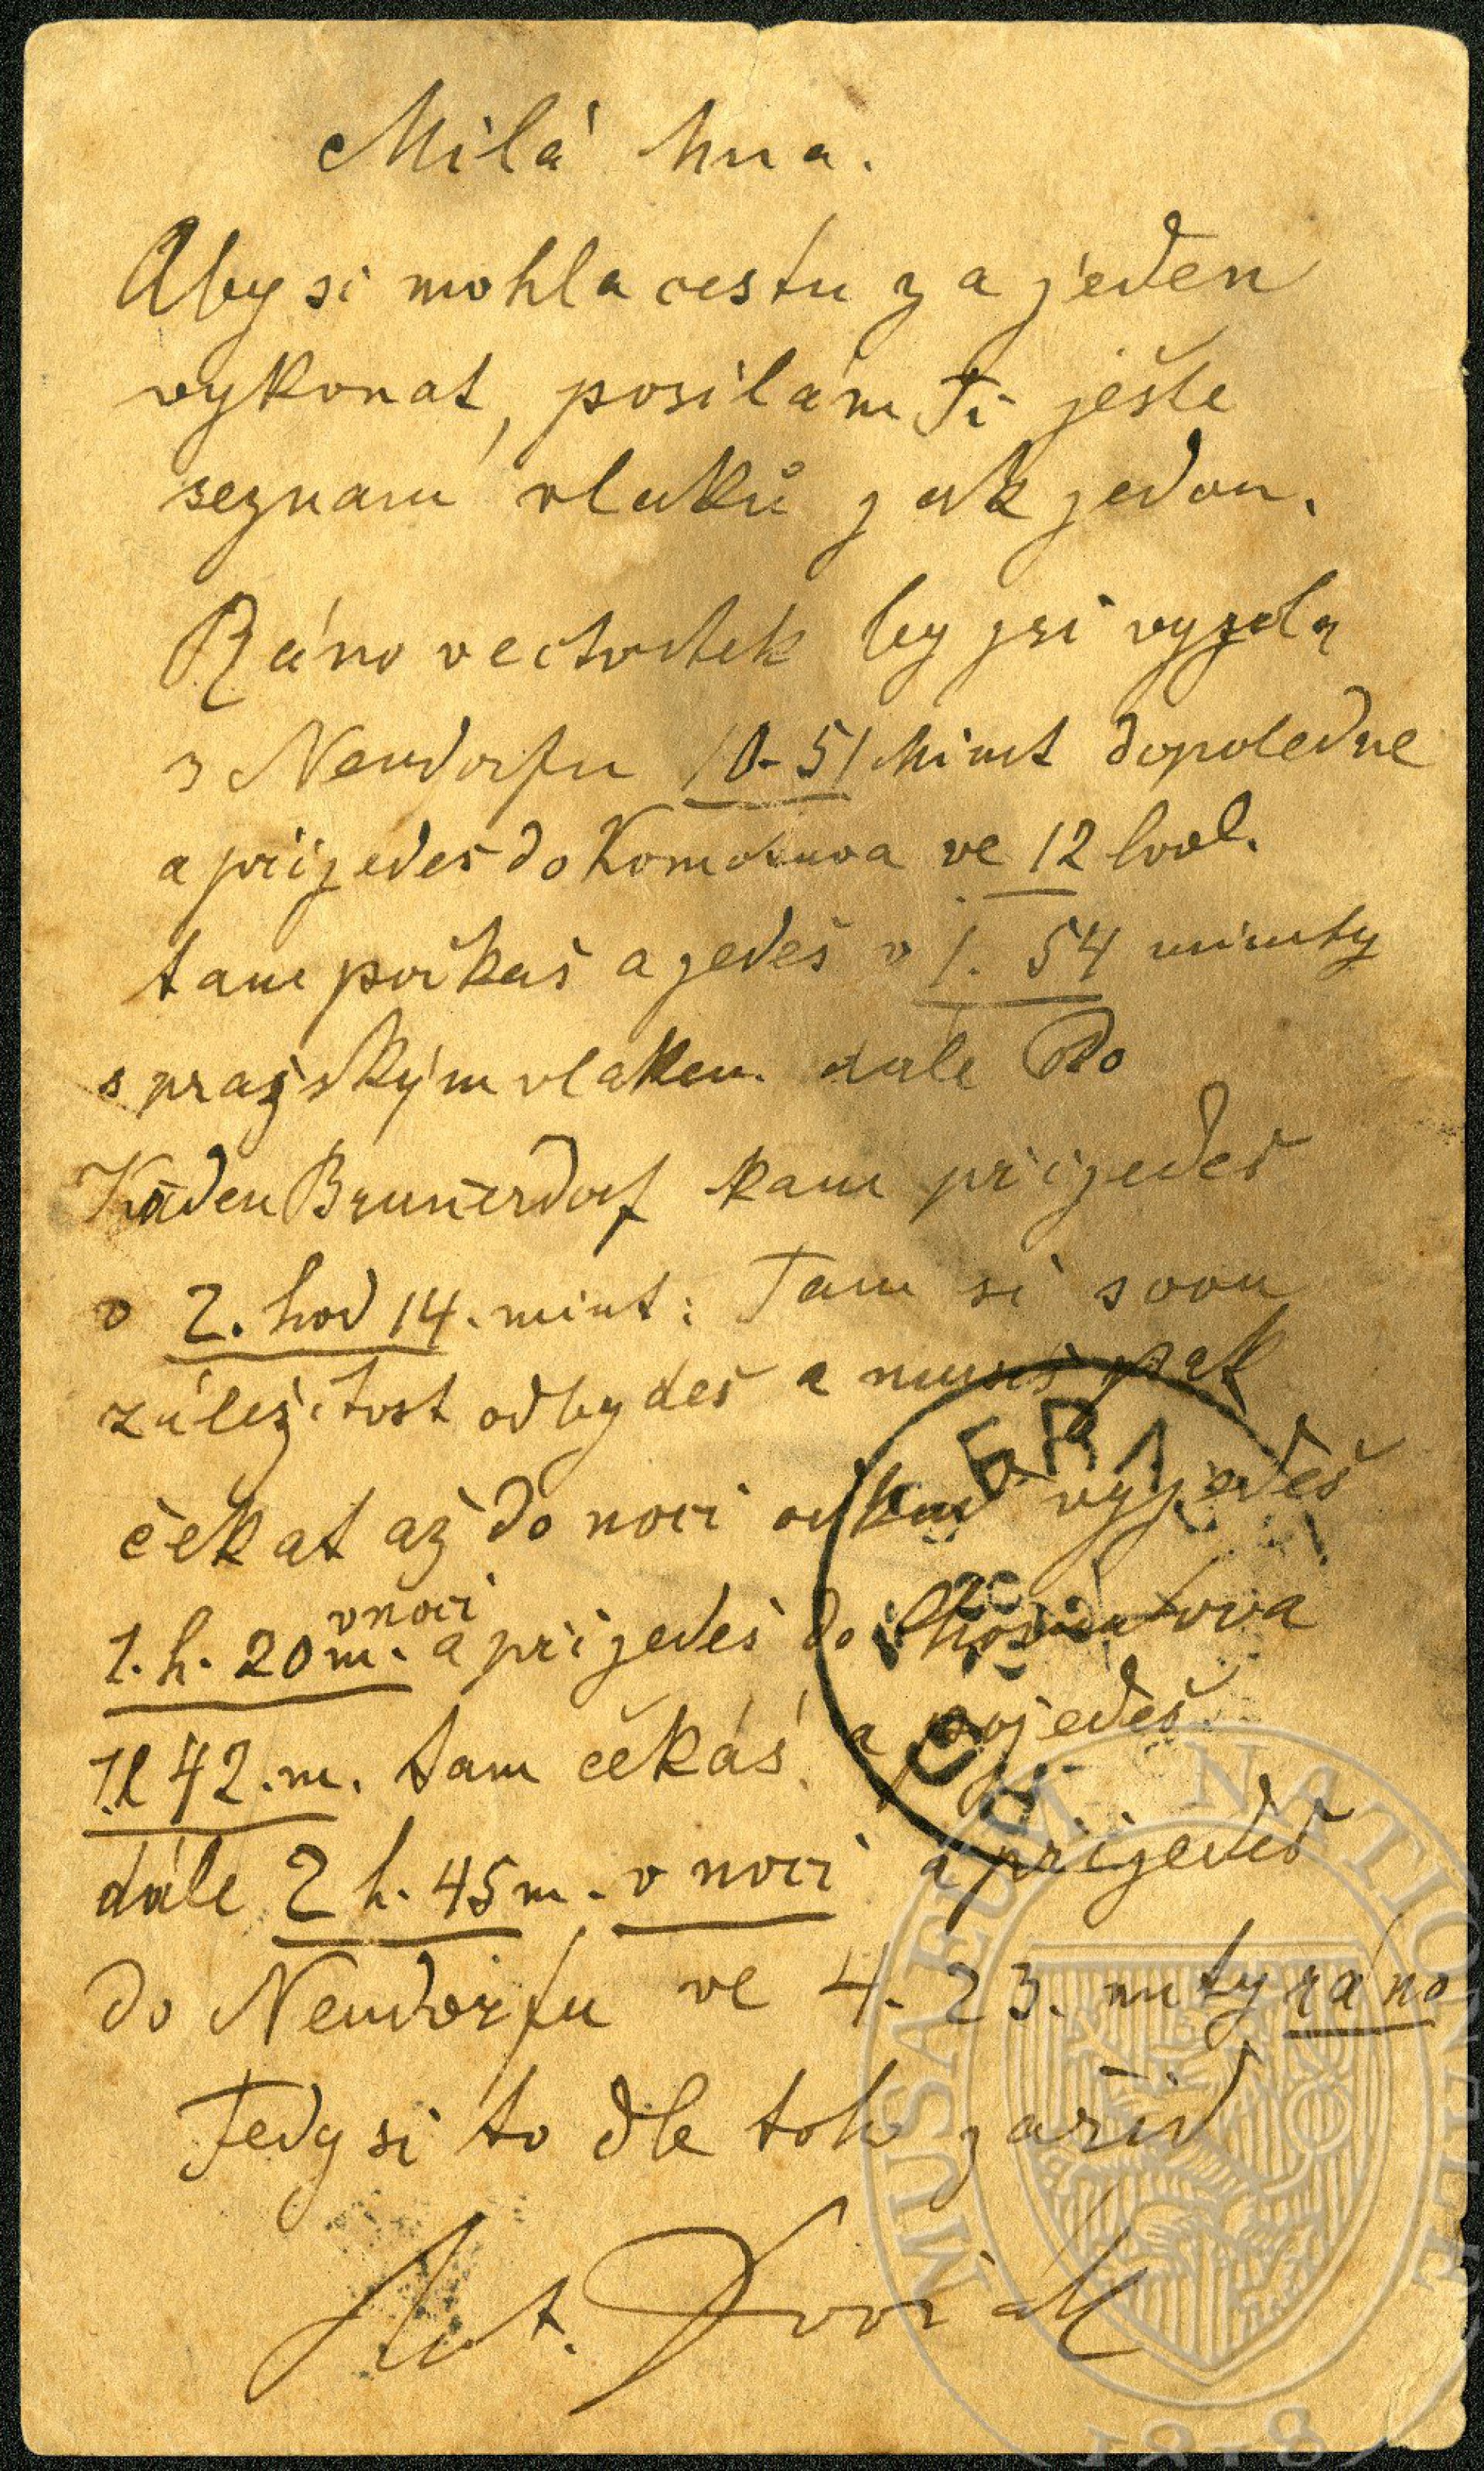 Milá hna.
Aby si mohla cestu za jeden
vykonat, posilám Ti ješte
seznam vlaků jak jedou.
Ráno ve čtvrtek by jsi vyjela
z Neudorfu 10-51 Minut dopoledne
a přijedeš do Komotova ve 12 hod.
tam počkaš a jedeš v 1. 54 minuty
s pražským vlakem dale do
Kaden Brunersdorf kam přijedeš
v 2. hod 14. minut: Tam si svou
záležitost odbydeš a musíš pak
čekat až do noci odkud vyjedeš
v noci
1. h. 20 m. a přijedeš do Chomutova
1h 42. m. tam čekáš a pojedeš
dále 2 h. 45 m. v noci a přijedeš
do Neudorfu ve 4. 23. mty ráno
Tedy si to dle toho zařiď
Ant. Dvořák
MUSAEUM NATIONALE
1818